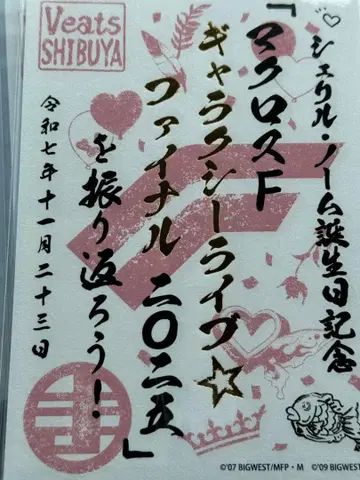 Veats
SHIBUYA
シェリル・ノーム誕生日記念
「マクロスF
ギャラクシーライブ☆
ファイナル 二〇二五」
を振り返ろう!
令和七年十一月二十三日
©'07 BIGWEST/MFP・M ©'09 BIGWEST/M